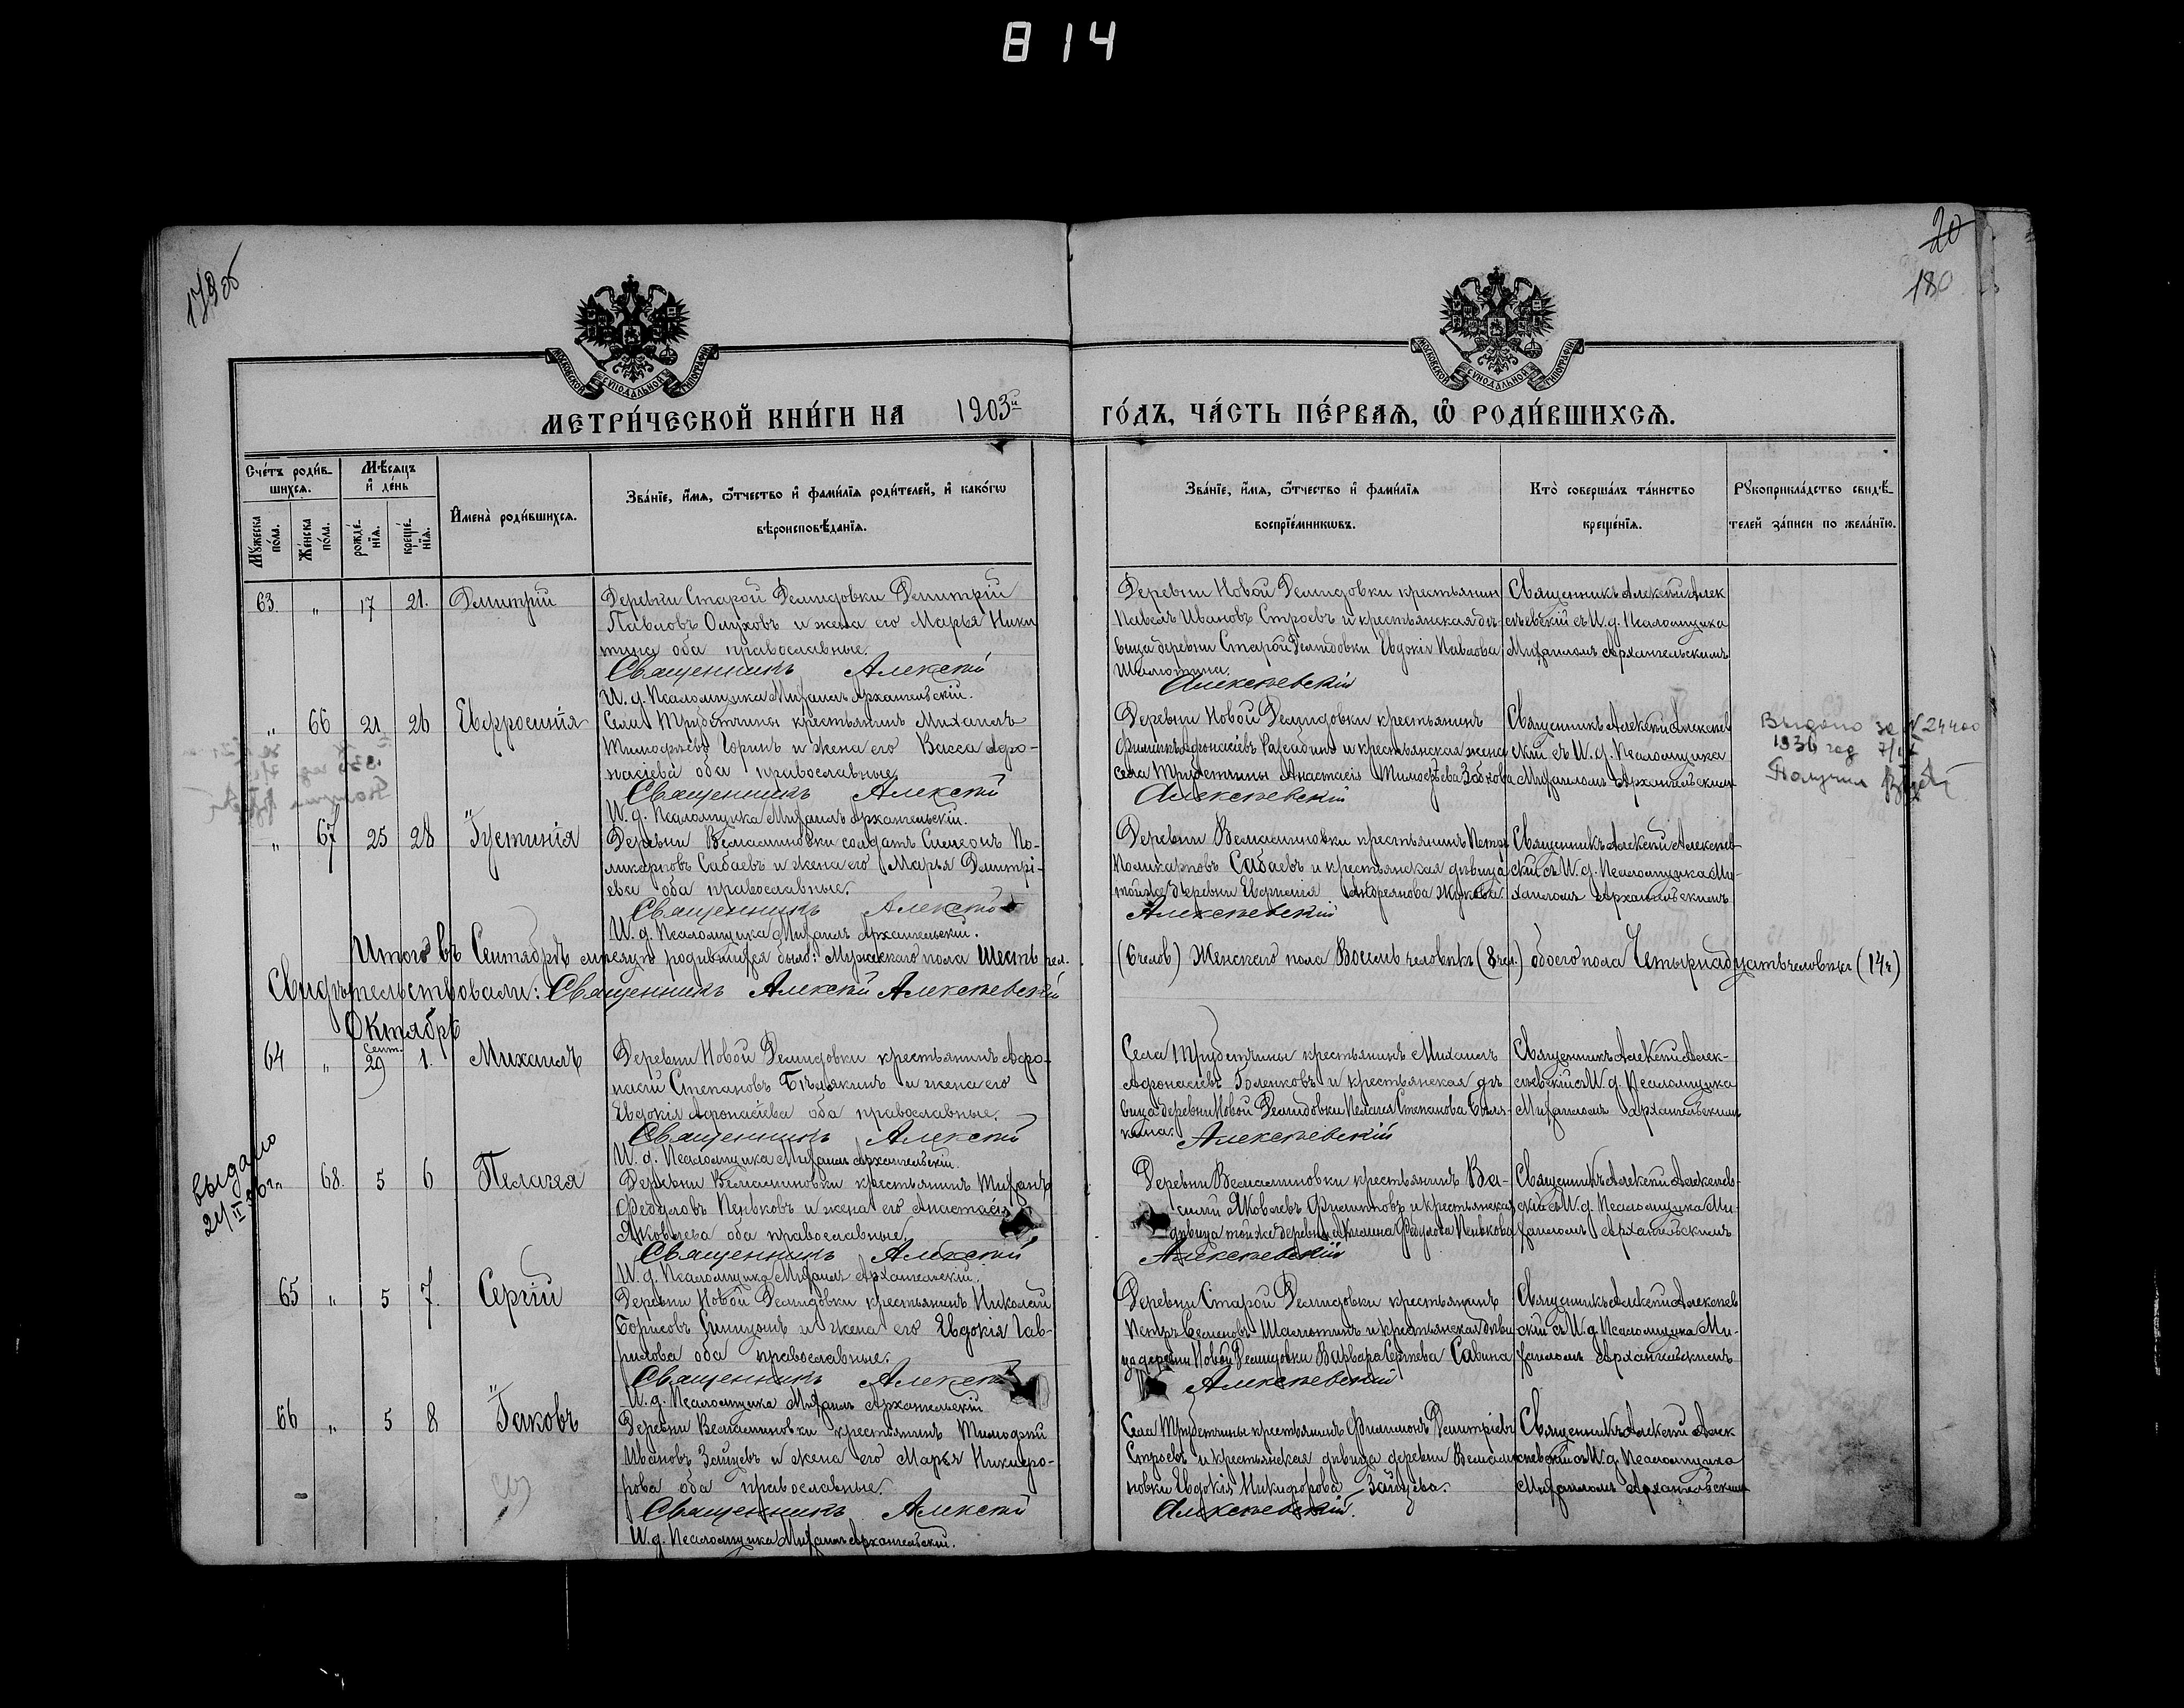 814
179об
20
180
МОСКОВСКОЙ СѴНОДАЛЬНОЙ ТИПОГРАФІИ
МОСКОВСКОЙ СѴНОДАЛЬНОЙ ТИПОГРАФІИ
МЕТРИ́ЧЕСКОЙ КНИ́ГИ НА 1903й ГО́ДЪ, ЧА́СТЬ ПЕ́РВАѦ, Ѡ РОДИ́ВШИХСѦ.
Сче́тъ роди́в-
шихсѧ.
Мѣсѧцъ
и де́нь
Мꙋжеска
по́ла.
Же́нска
по́ла.
рожде́-
нїѧ.
креще́-
нїѧ.
Имена̀ роди́вшихсѧ.
Зва́нїе, и́мѧ, ѻ́тчество и фами́лїѧ роди́телей, и како́гѡ
вѣроисповѣ́данїѧ.
Зва́нїе, и́мѧ, ѻ́тчество и фами́лїѧ
воспрїе́мникѡвъ.
Кто̀ соверша́лъ та́инство
креще́нїѧ.
Рꙋкоприкла́дство свидѣ́-
телей за́писи по жела́нїю.
63. " 17 21. Дмитрій
Деревни Старой Демидовки Димитрій
Павловъ Олуховъ и жена его Марья Ники
тина оба православные.
Священникъ Алексій
И. д. Псаломщика Михаилъ Архангельскій.
Деревни Новой Демидовки крестьянин
Павелъ Ивановъ Строевъ и крестьянская дѣ-
вица деревни Старой Демидовки Евдокія Павлова
Шалютина.
Алексѣевскій
Священникъ Алексій Алек
сѣевскій съ И. д. Псаломщика
Михаиломъ Архангельскимъ
" 66 21 26 Евфросинія
Села Трубетчины крестьянинъ Михаилъ
Тимофѣевъ Горинъ и жена его Васса Афо-
насіева оба православные.
Священникъ Алексій
И. д. Псаломщика Михаилъ Архангельскій.
Деревни Новой Демидовки крестьянинъ
Филиппъ Афонасіевъ и крестьянская жена
села Трубетчины Анастасія Тимофѣева
Алексѣевскій
Священникъ Алексій Алексѣев
скій съ И. д. Псаломщика
Михаиломъ Архангельскимъ
Выдано за N 24400
1936 год
Получил
" 67 25 28 Іустинія
Деревни Вельяминовки солдатъ Симеонъ По-
ликарповъ Сабаевъ и жена его Марья Димитрі-
ева оба православные.
Священникъ Алексій
И. д. Псаломщика Михаилъ Архангельскій.
Деревни Вельяминовки крестьянинъ Петръ
Поликарповъ Сабаевъ и крестьянская дѣвица
тойже деревни Андреянова Жукова.
Алексѣевскій
Священникъ Алексій Алексѣев-
скій съ И. д. Псаломщика Ми-
хаиломъ Архангельскимъ
Итого въ Сентябрѣ мѣсяцѣ родившихся было: Мужескаго пола Шесть чел. (6 челов) Женскаго пола Восемь человѣкъ (8 чел.) обоего пола Четырнадцать человѣкъ (14 ч)
Свидѣтельствовали: Священникъ Алексій Алексѣевскій
Октябрь
64 " Сент. 29 1. Михаилъ
Деревни Новой Демидовки крестьянинъ Афо-
насій Степановъ Бѣлякинъ и жена его
Евдокія Афонасіева оба православные.
Священникъ Алексій
И. д. Псаломщика Михаилъ Архангельскій.
Села Трубетчины крестьянинъ Михаилъ
Афонасіевъ Голенковъ и крестьянская дѣ
вица деревни Новой Демидовки Пелагія Степанова Бѣля-
кина.
Алексѣевскій
Священникъ Алексій Алек-
сѣевскій съ И. д. Псаломщика
Михаиломъ Архангельскимъ
выдано
24/II 36 г.
" 68. 5 6 Пелагея
Деревни Вельяминовки крестьянинъ Тихонъ
Федуловъ Пеньковъ и жена его Анастасія
Яковлева оба православные.
Священникъ Алексій
И. д. Псаломщика Михаилъ Архангельскій.
Деревни Вельяминовки крестьянинъ Ва-
силій Яковлевъ Филиповъ и крестьянская
дѣвица тойже деревни Акилина Федулова Пенькова
Алексѣевскій
Священникъ Алексій Алексѣев-
скій съ И. д. Псаломщика Ми-
хаиломъ Архангельскимъ
65 " 5 7. Сергій
Деревни Новой Демидовки крестьянинъ Николай
Борисовъ Синицынъ и жена его Евдокія Гав-
рилова оба православные.
Священникъ Алексій
И. д. Псаломщика Михаилъ Архангельскій
Деревни Старой Демидовки крестьянинъ
Петръ Семеновъ Шалютинъ и крестьянская дѣви
ца деревни Новой Демидовки Варвара Сергѣева Савина
Алексѣевскій
Священникъ Алексій Алексѣев
скій съ И. д. Псаломщика Ми-
хаиломъ Архангельскимъ
66 " 5 8 Іаковъ
Деревни Вельяминовки крестьянинъ Тимофей
Ивановъ Зайцевъ и жена его Марья Никифо-
рова оба православные.
Священникъ Алексій
И. д. Псаломщика Михаилъ Архангельскій.
Села Трубетчины крестьянинъ Филимонъ Димитріевъ
Строевъ и крестьянская дѣвица деревни Вельями
новки Евдокія Никифорова Зайцева.
Алексѣевскій.
Священникъ Алексій Алек
сѣевскій съ И. д. Псаломщика
Михаиломъ Архангельскимъ